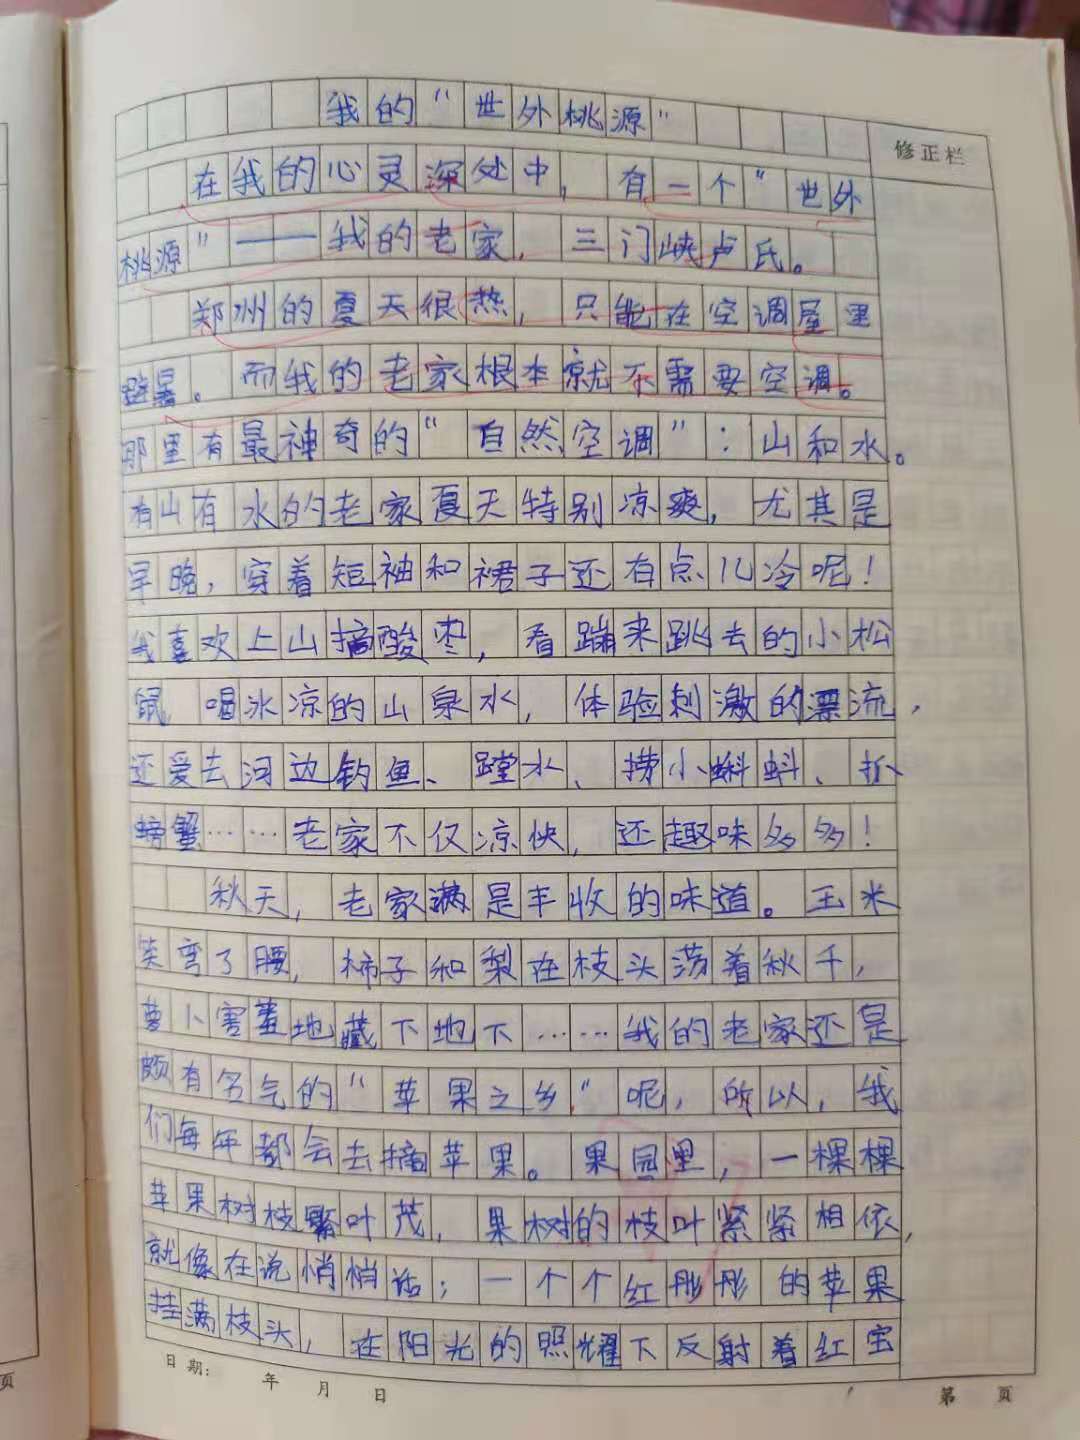 我的“世外桃源”
修正栏
在我的心灵深处中，有一个“世外
桃源”——我的老家，三门峡卢氏。
郑州的夏天很热，只能在空调屋里
避暑。而我的老家根本就不需要空调。
那里有最神奇的“自然空调”：山和水。
有山有水的老家夏天特别凉爽，尤其是
早晚，穿着短袖和裙子还有点儿冷呢！
我喜欢上山摘酸枣，看蹦来跳去的小松
鼠，喝冰凉的山泉水，体验刺激的漂流，
还爱去河边钓鱼、蹚水、捞小蝌蚪、抓
螃蟹……老家不仅凉快，还趣味多多！
秋天，老家满是丰收的味道。玉米
笑弯了腰，柿子和梨在枝头荡着秋千，
萝卜害羞地藏下地下……我的老家还是
颇有名气的“苹果之乡”呢，所以，我
们每年都会去摘苹果。果园里，一棵棵
苹果树枝繁叶茂，果树的枝叶紧紧相依，
就像在说悄悄话；一个个红彤彤的苹果
挂满枝头，在阳光的照耀下反射着红宝
日期： 年 月 日
第 页
页